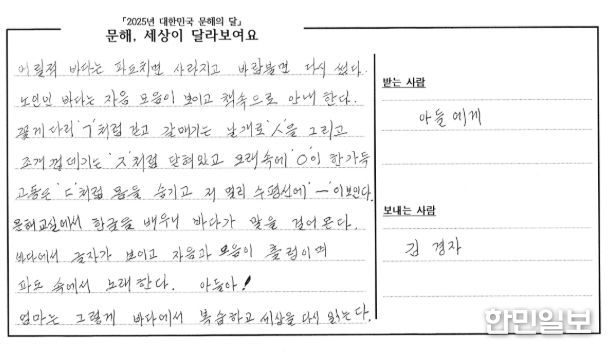 「2025년 대한민국 문해의 달」
문해, 세상이 달라보여요
어릴적 바다는 파도치면 사라지고 바람불면 다시 썼다.
노인인 바다는 자음 모음이 보이고 책속으로 안내 한다.
꽃게 다리 'ㄱ'처럼 걷고 갈매기는 날개로 'ㅅ'을 그리고
조개 껍데기는 'ㅈ'처럼 닫혀있고 모래속에 'ㅇ'이 한가득
고동은 'ㄷ'처럼 몸을 숨기고 저 멀리 수평선에 'ㅡ'이 보인다.
문해교실에서 한글을 배우니 바다가 말을 걸어 온다.
바다에서 글자가 보이고 자음과 모음이 출렁이며
파도 속에서 노래한다. 아들아!
엄마는 그렇게 바다에서 복습하고 세상을 다시 읽는다.
받는 사람
아들에게
보내는 사람
김 경자
한민일보